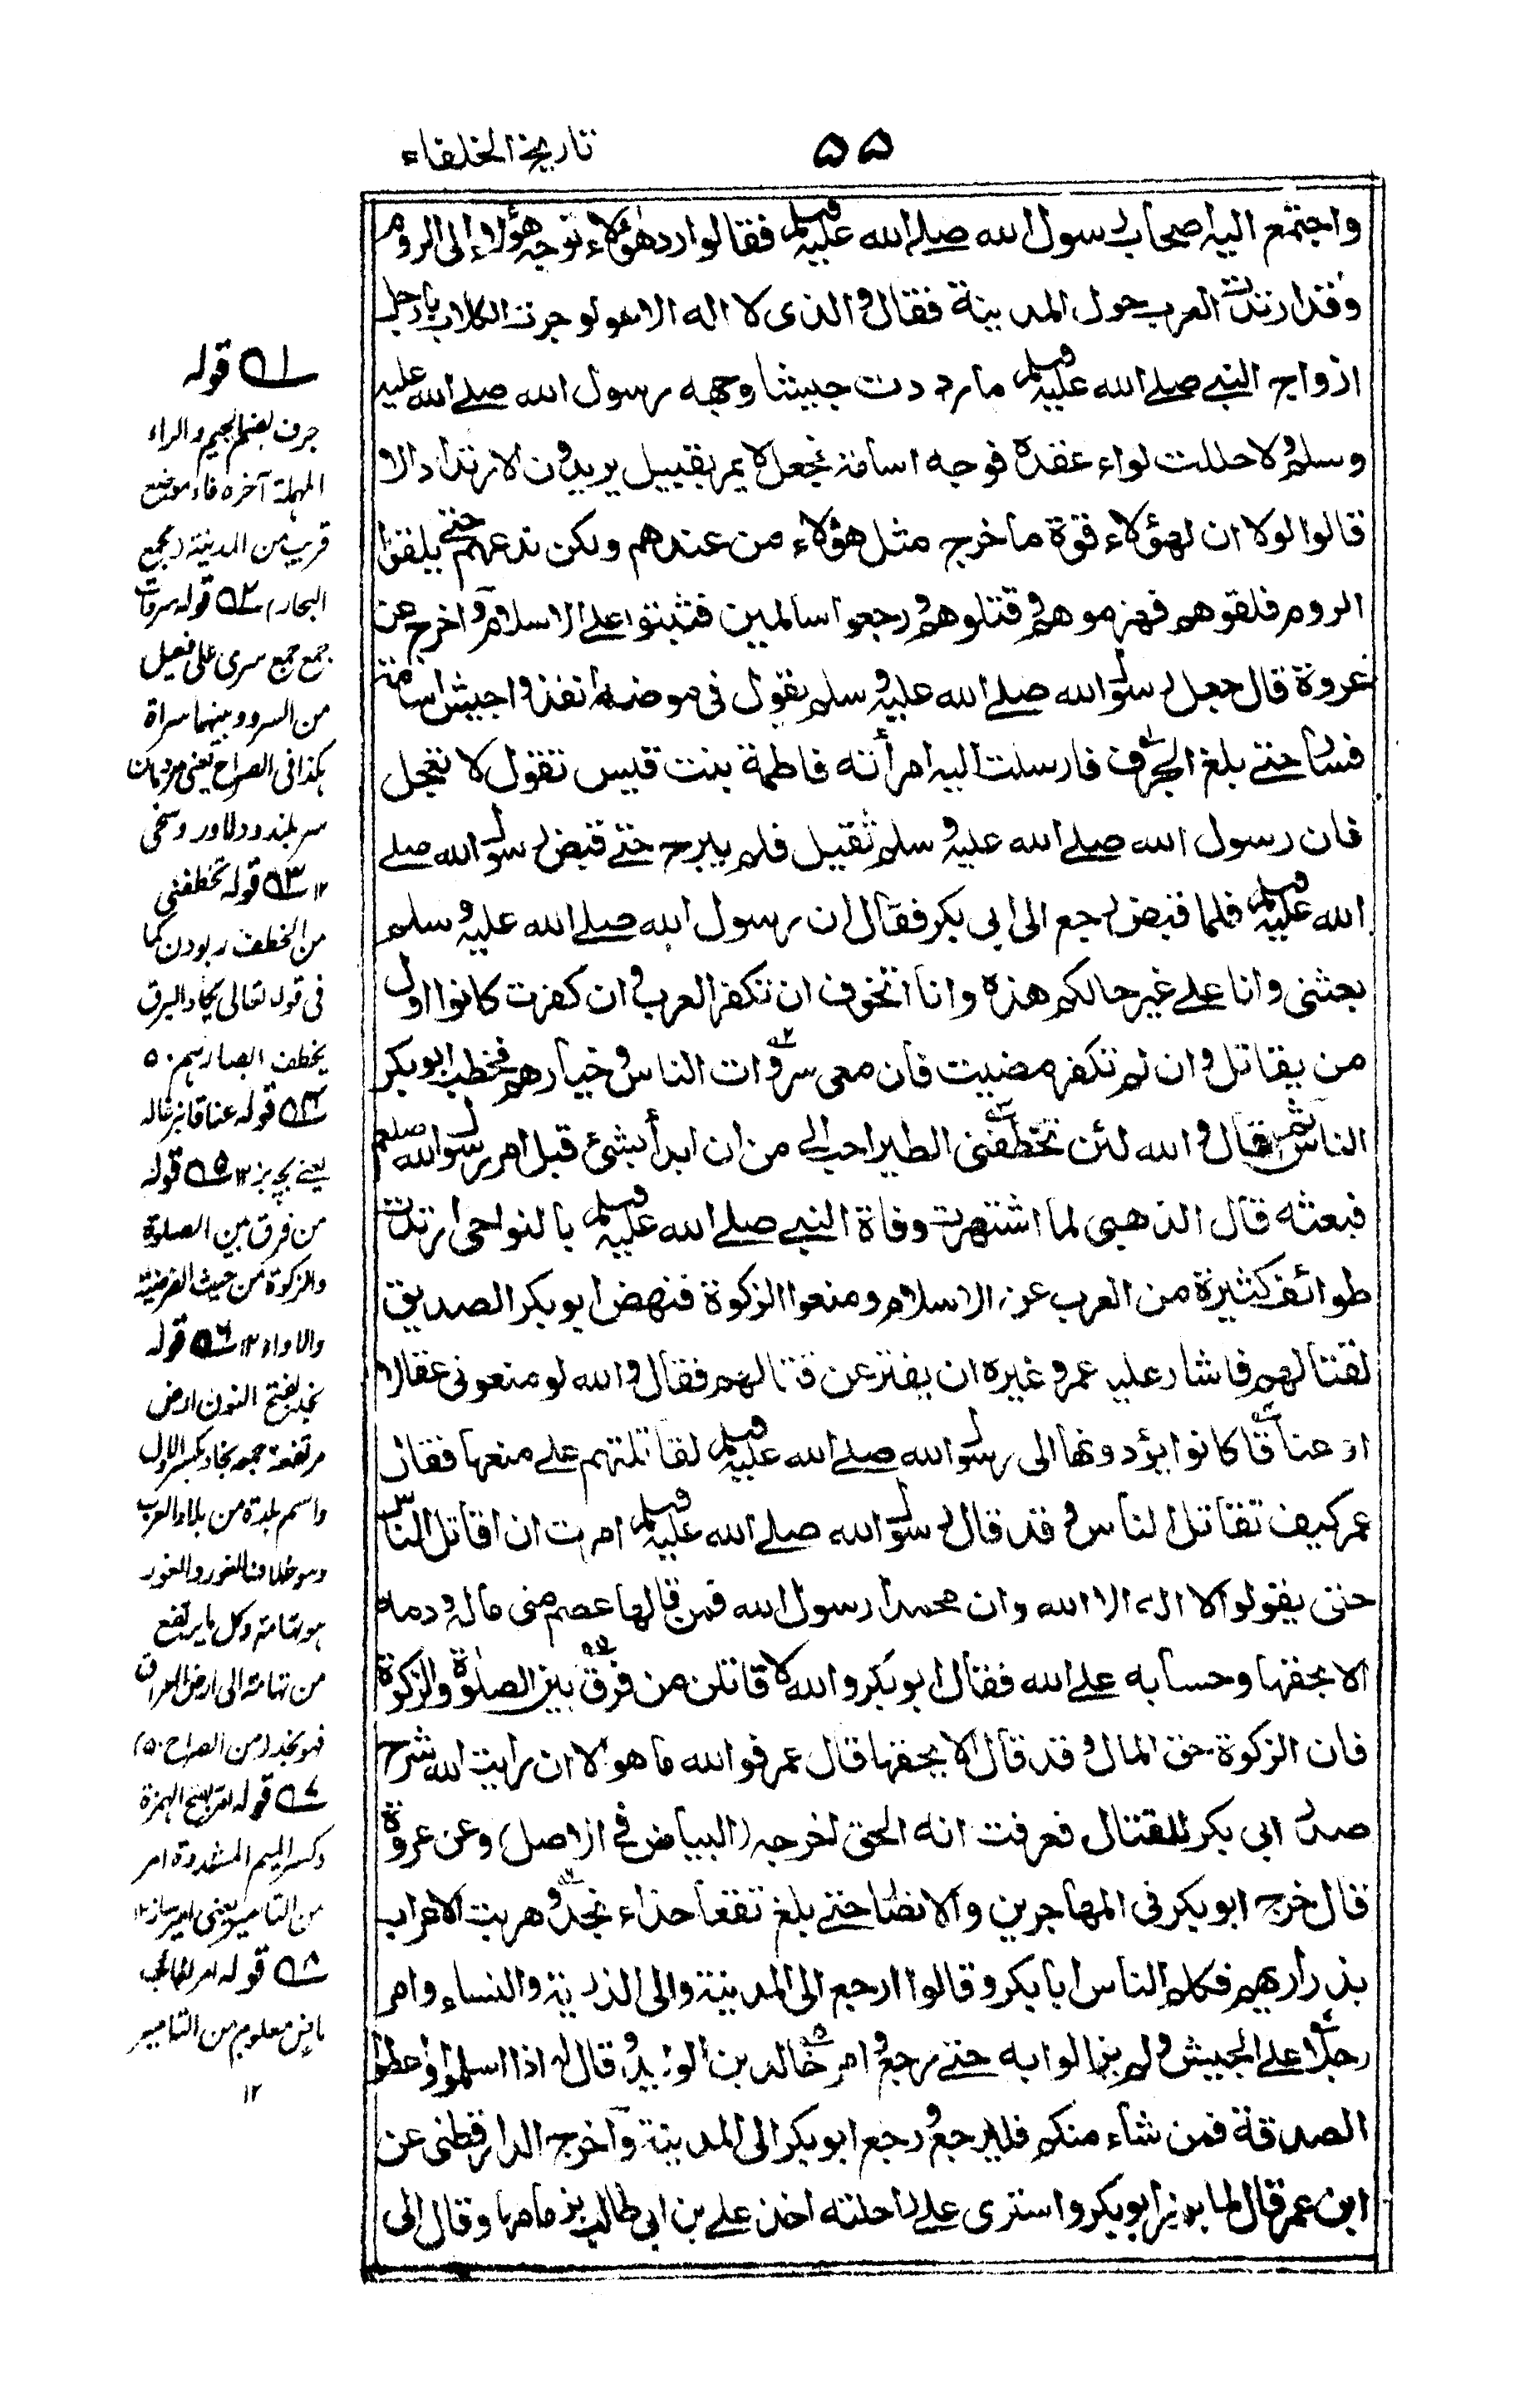 ۵۵
تاريخ الخلفاء
واجتمع اليه اصحاب رسول الله صلے الله عليه وسلم فقالوا رد هؤلاء توجه هؤلاء الى الروم
وقد ارتدت العرب حول المدينة فقال والذى لا اله الا هو لو جرت الكلاب بارجل
ازواج النبے صلے الله عليه وسلم ما رددت جيشا وجهه رسول الله صلے الله عليه
وسلم ولا حللت لواء عقده فوجه اسامة فجعل لا يمر بقبيل يريدون الارتداد الا
قالوا لولا ان لهؤلاء قوة ما خرج مثل هؤلاء من عندهم ولكن ندعهم حتے يلقوا
الروم فلقوهم فهزموهم وقتلوهم ورجعوا سالمين فثبتوا علے الاسلام واخرج عن
عروة قال جعل رسول الله صلے الله عليه وسلم يقول فى مرضه انفذوا جيش اسامة
فسار حتے بلغ الجرف فارسلت اليه امرأته فاطمة بنت قيس تقول لا تعجل
فان رسول الله صلے الله عليه وسلم ثقيل فلم يبرح حتے قبض رسول الله صلے
الله عليه وسلم فلما قبض رجع الى ابى بكر فقال ان رسول الله صلے الله عليه وسلم
بعثنى وانا علے غير حالكم هذه وانا اتخوف ان تكفر العرب وان كفرت كانوا اول
من يقاتل وان لم تكفر مضيت فان معى سروات الناس وخيارهم فخطب ابو بكر
الناس ثم قال والله لئن تخطفنى الطير احب الے من ان ابدأ بشئ قبل امر رسول الله صلعم
فبعثه قال الذهبى لما اشتهرت وفاة النبے صلے الله عليه وسلم بالنواحى ارتدت
طوائف كثيرة من العرب عن الاسلام ومنعوا الزكوة فنهض ابو بكر الصديق
لقتالهم فاشار عليه عمر وغيره ان يفتر عن قتالهم فقال والله لو منعونى عقالا
او عناقا كانوا يؤدونها الى رسول الله صلے الله عليه وسلم لقاتلتهم علے منعها فقال
عمر كيف تقاتل الناس وقد قال رسول الله صلے الله عليه وسلم امرت ان اقاتل الناس
حتى يقولوا لا اله الا الله وان محمدا رسول الله فمن قالها عصم منى ماله ودمه
الا بحقها وحسابه علے الله فقال ابو بكر والله لا قاتلن من فرق بين الصلوة والزكوة
فان الزكوة حق المال وقد قال الا بحقها قال عمر فوالله ما هو الا ان رايت الله شرح
صدر ابى بكر للقتال فعرفت انه الحق اخرجه (البياض فے الاصل) وعن عروة
قال خرج ابو بكر فى المهاجرين والانصار حتے بلغ نقعا حذاء نجد وهربت الاعراب
بذراريهم فكلم الناس ابا بكر وقالوا ارجع الى المدينة والى الذرية والنساء وامر
رجلا علے الجيش ولم يزالوا به حتے رجع وامر خالد بن الوليد وقال له اذا اسلموا واعطوا
الصدقة فمن شاء منكم فليرجع ورجع ابو بكر الى المدينة واخرج الدارقطنى عن
ابن عمر قال لما برز ابو بكر واستوى علے راحلته اخذ علے بن ابى طالب بزمامها وقال الى
۱ قوله
جرف بضم الجيم والراء
المهملة آخره فاء موضع
قريب من المدينة (مجمع
البحار) ۲ قوله سروات
جمع جمع سرى على فعيل
من السرو وبينهما سراة
هكذا فى الصراح يعنى مردمان
سر بلند ودلاور وسخى
۱۲ ۳ قوله تخطفنى
من الخطف ربودن كما
فى قوله تعالى يكاد البرق
يخطف ابصارهم ۵۰
۴ قوله عناقا بزغاله
يعنے بچہ بز ۱۲ ۵ قوله
من فرق بين الصلوة
والزكوة من حيث الفرضية
والاداء ۱۲ ۶ قوله
نجد بفتح النون ارض
مرتفعة جمعه نجاد بكسر الاول
واسم بلدة من بلاد العرب
وهو خلاف الغور والغور
هو تهامة وكل ما يرتفع
من تهامة الى ارض العراق
فهو نجد (من الصراح ۵۰)
۷ قوله امر بفتح الهمزة
وكسر الميم المشددة امر
من التامير يعنى امير ساز ۱۲
۸ قوله امر خالد
ماض معلوم من التامير
۱۲